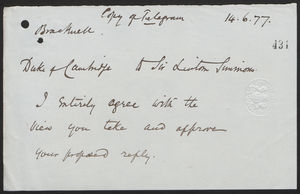 Copy of Telegram 14.6.77.
Bracknell.
431
Duke of Cambridge to Sir Lintorn Simmons.
I Entirely agree with the
view you take and approve
your proposed reply.